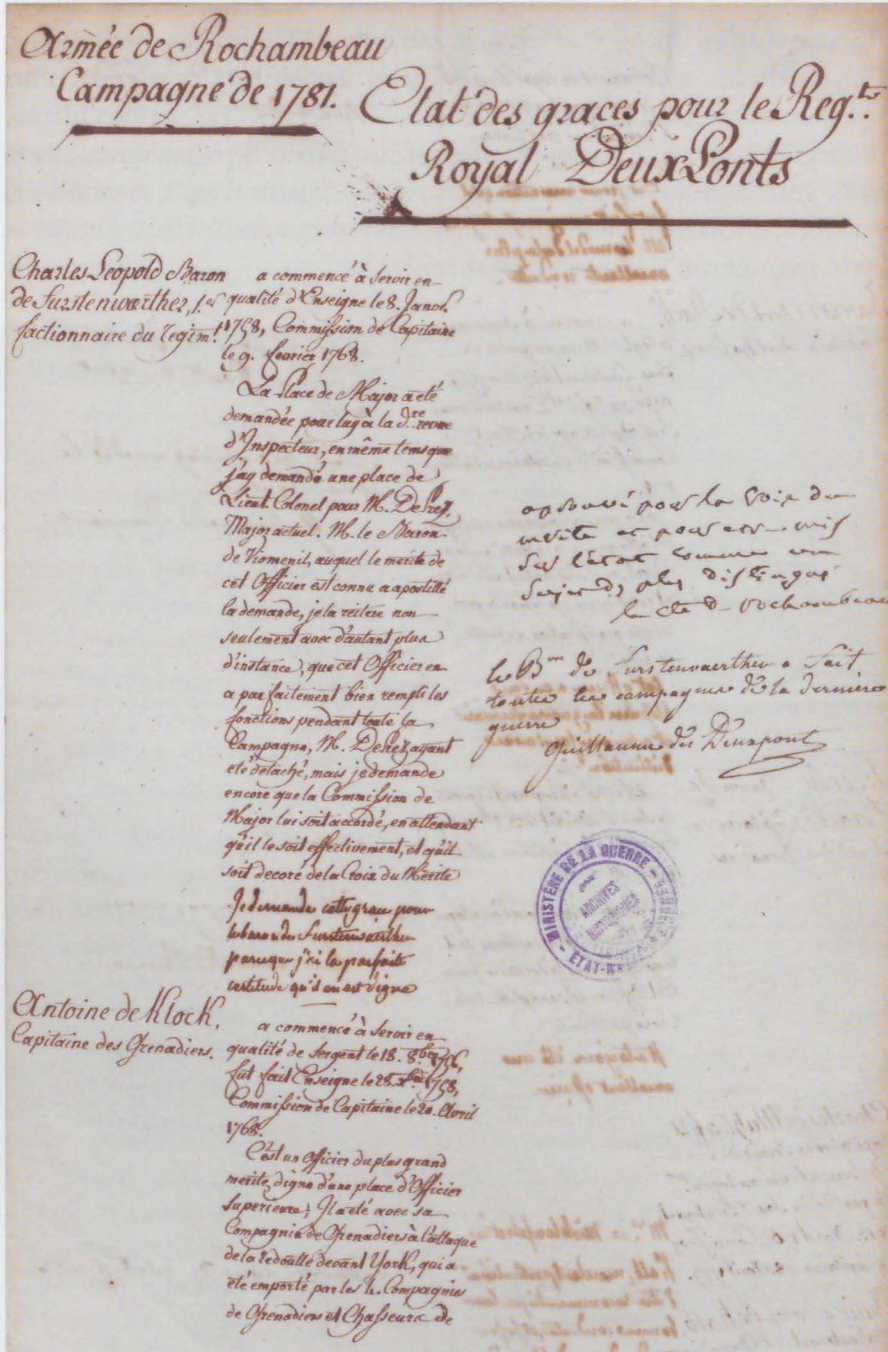 Armée de Rochambeau
Campagne de 1781.
Etat des graces pour le Reg.ts
Royal Deux Ponts
Charles Leopold Baron
de Furstenwarther, 1.er
factionnaire du regim.t
a commencé à servir en
qualité d'Enseigne le 8. Janv.
1758, Commission de Capitaine
le 9. fevrier 1768.
La Place de Major a eté
demandée pour luy à la d.re revue
d'Inspecteur, en même tems que
j'ay demandé une place de
Lieut. Colonel pour M. De Prez,
Major actuel. M. le Baron
de Viomenil, auquel le merite de
cet Officier est connu a apostillé
la demande, je la reitere non
seulement avec d'autant plus
d'instance, que cet Officier en
a parfaitement bien rempli les
fonctions pendant toute la
Campagne, M. De Prez ayant
eté detaché, mais je demande
encore que la Commission de
Major lui soit accordé, en attendant
qu'il le soit effectivement, et qu'il
soit decoré de la Croix du Mérite
Je demande cette grace pour
le baron de Furstenwarther
parceque j'ai la parfaite
certitude qu'il en est digne
approuvé pour la Croix du
merite et pour etre mis
sur l'etat comme un
sujet des plus distingué
le cte de rochambeau
le B.on de Furstenwaerther a fait
toutes les campagnes de la derniere
guerre
Guillaume des Deuxponts
MINISTERE DE LA GUERRE
ARCHIVES
HISTORIQUES
Antoine de Klock,
Capitaine des Grenadiers.
a commencé à servir en
qualité de Sergent le 18. 8.bre 1756,
fut fait Enseigne le 28. X.bre 1758,
Commission de Capitaine le 20. Avril
1768.
C'est un Officier du plus grand
merite, digne d'une place d'Officier
superieure; Il a eté avec sa
Compagnie de Grenadiers à l'attaque
de la redoutte devant York, qui a
eté emporté par les 4. Compagnies
de Grenadiers et Chasseurs de